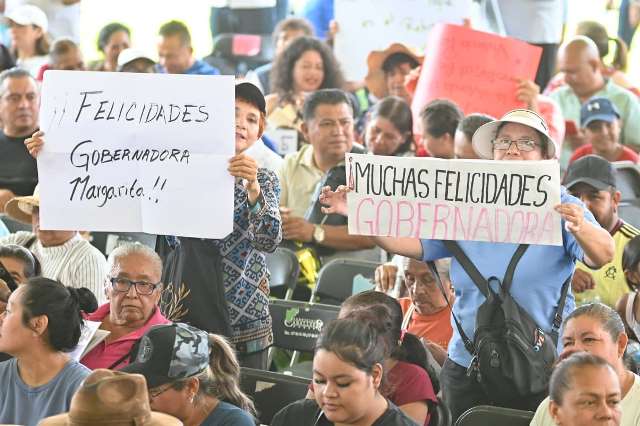 ¡¡ FELICIDADES
GOBERNADORA
MARGARITA!!
¡MUCHAS FELICIDADES
GOBERNADORA